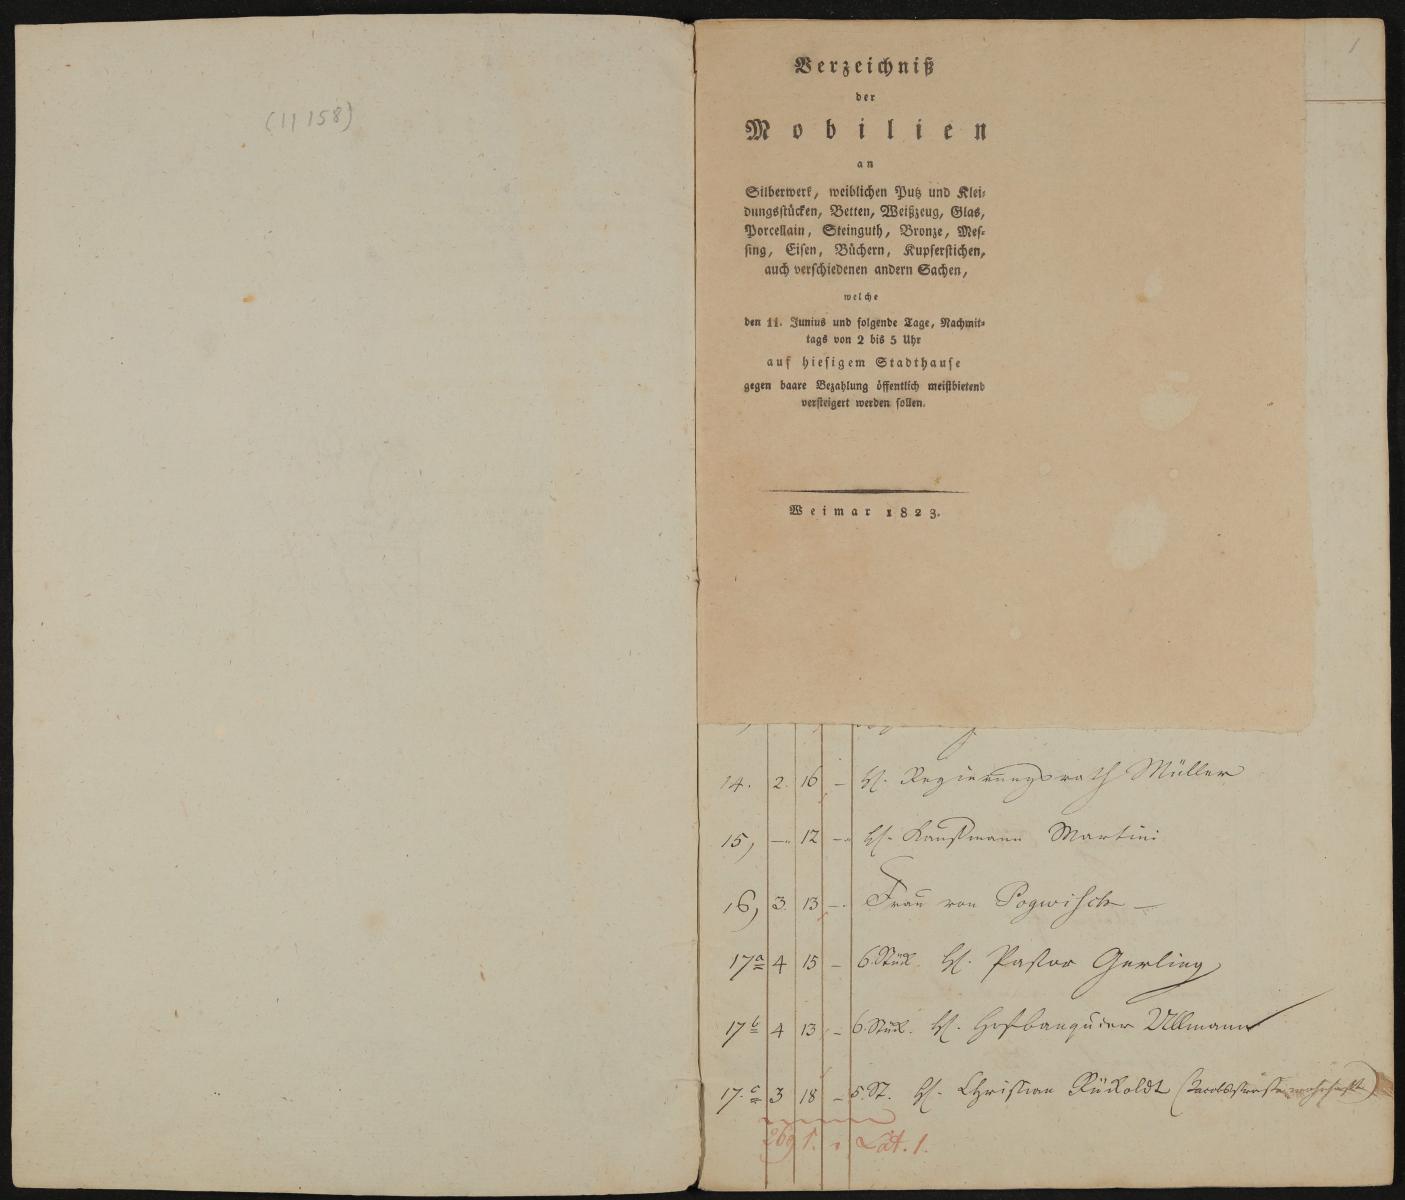 (11158)
1
Verzeichniß
der
Mobilien
an
Silberwerk, weiblichen Putz und Klei-
dungsstücken, Betten, Weißzeug, Glas,
Porcellain, Steinguth, Bronze, Mes-
sing, Eisen, Büchern, Kupferstichen,
auch verschiedenen andern Sachen,
welche
den 11. Junius und folgende Tage, Nachmit-
tags von 2 bis 5 Uhr
auf hiesigem Stadthause
gegen baare Bezahlung öffentlich meistbietend
versteigert werden sollen.
Weimar 1823.
14. 2. 16 – H. Regierungsrath Müller
15, –. 12 –. H. Kaufmann Martini
16, 3. 13 –. Frau von Pogwisch –
17a 4 15 – 6. Stük. H. Pastor Gerling
17b 4 13 – 6. Stük. H. Hofbanquier Ullmann
17.c 3 18 – 5. St. H. Christian Rükoldt (Jacobsstrasse wohnhaft)
269 1. – Lat. 1.